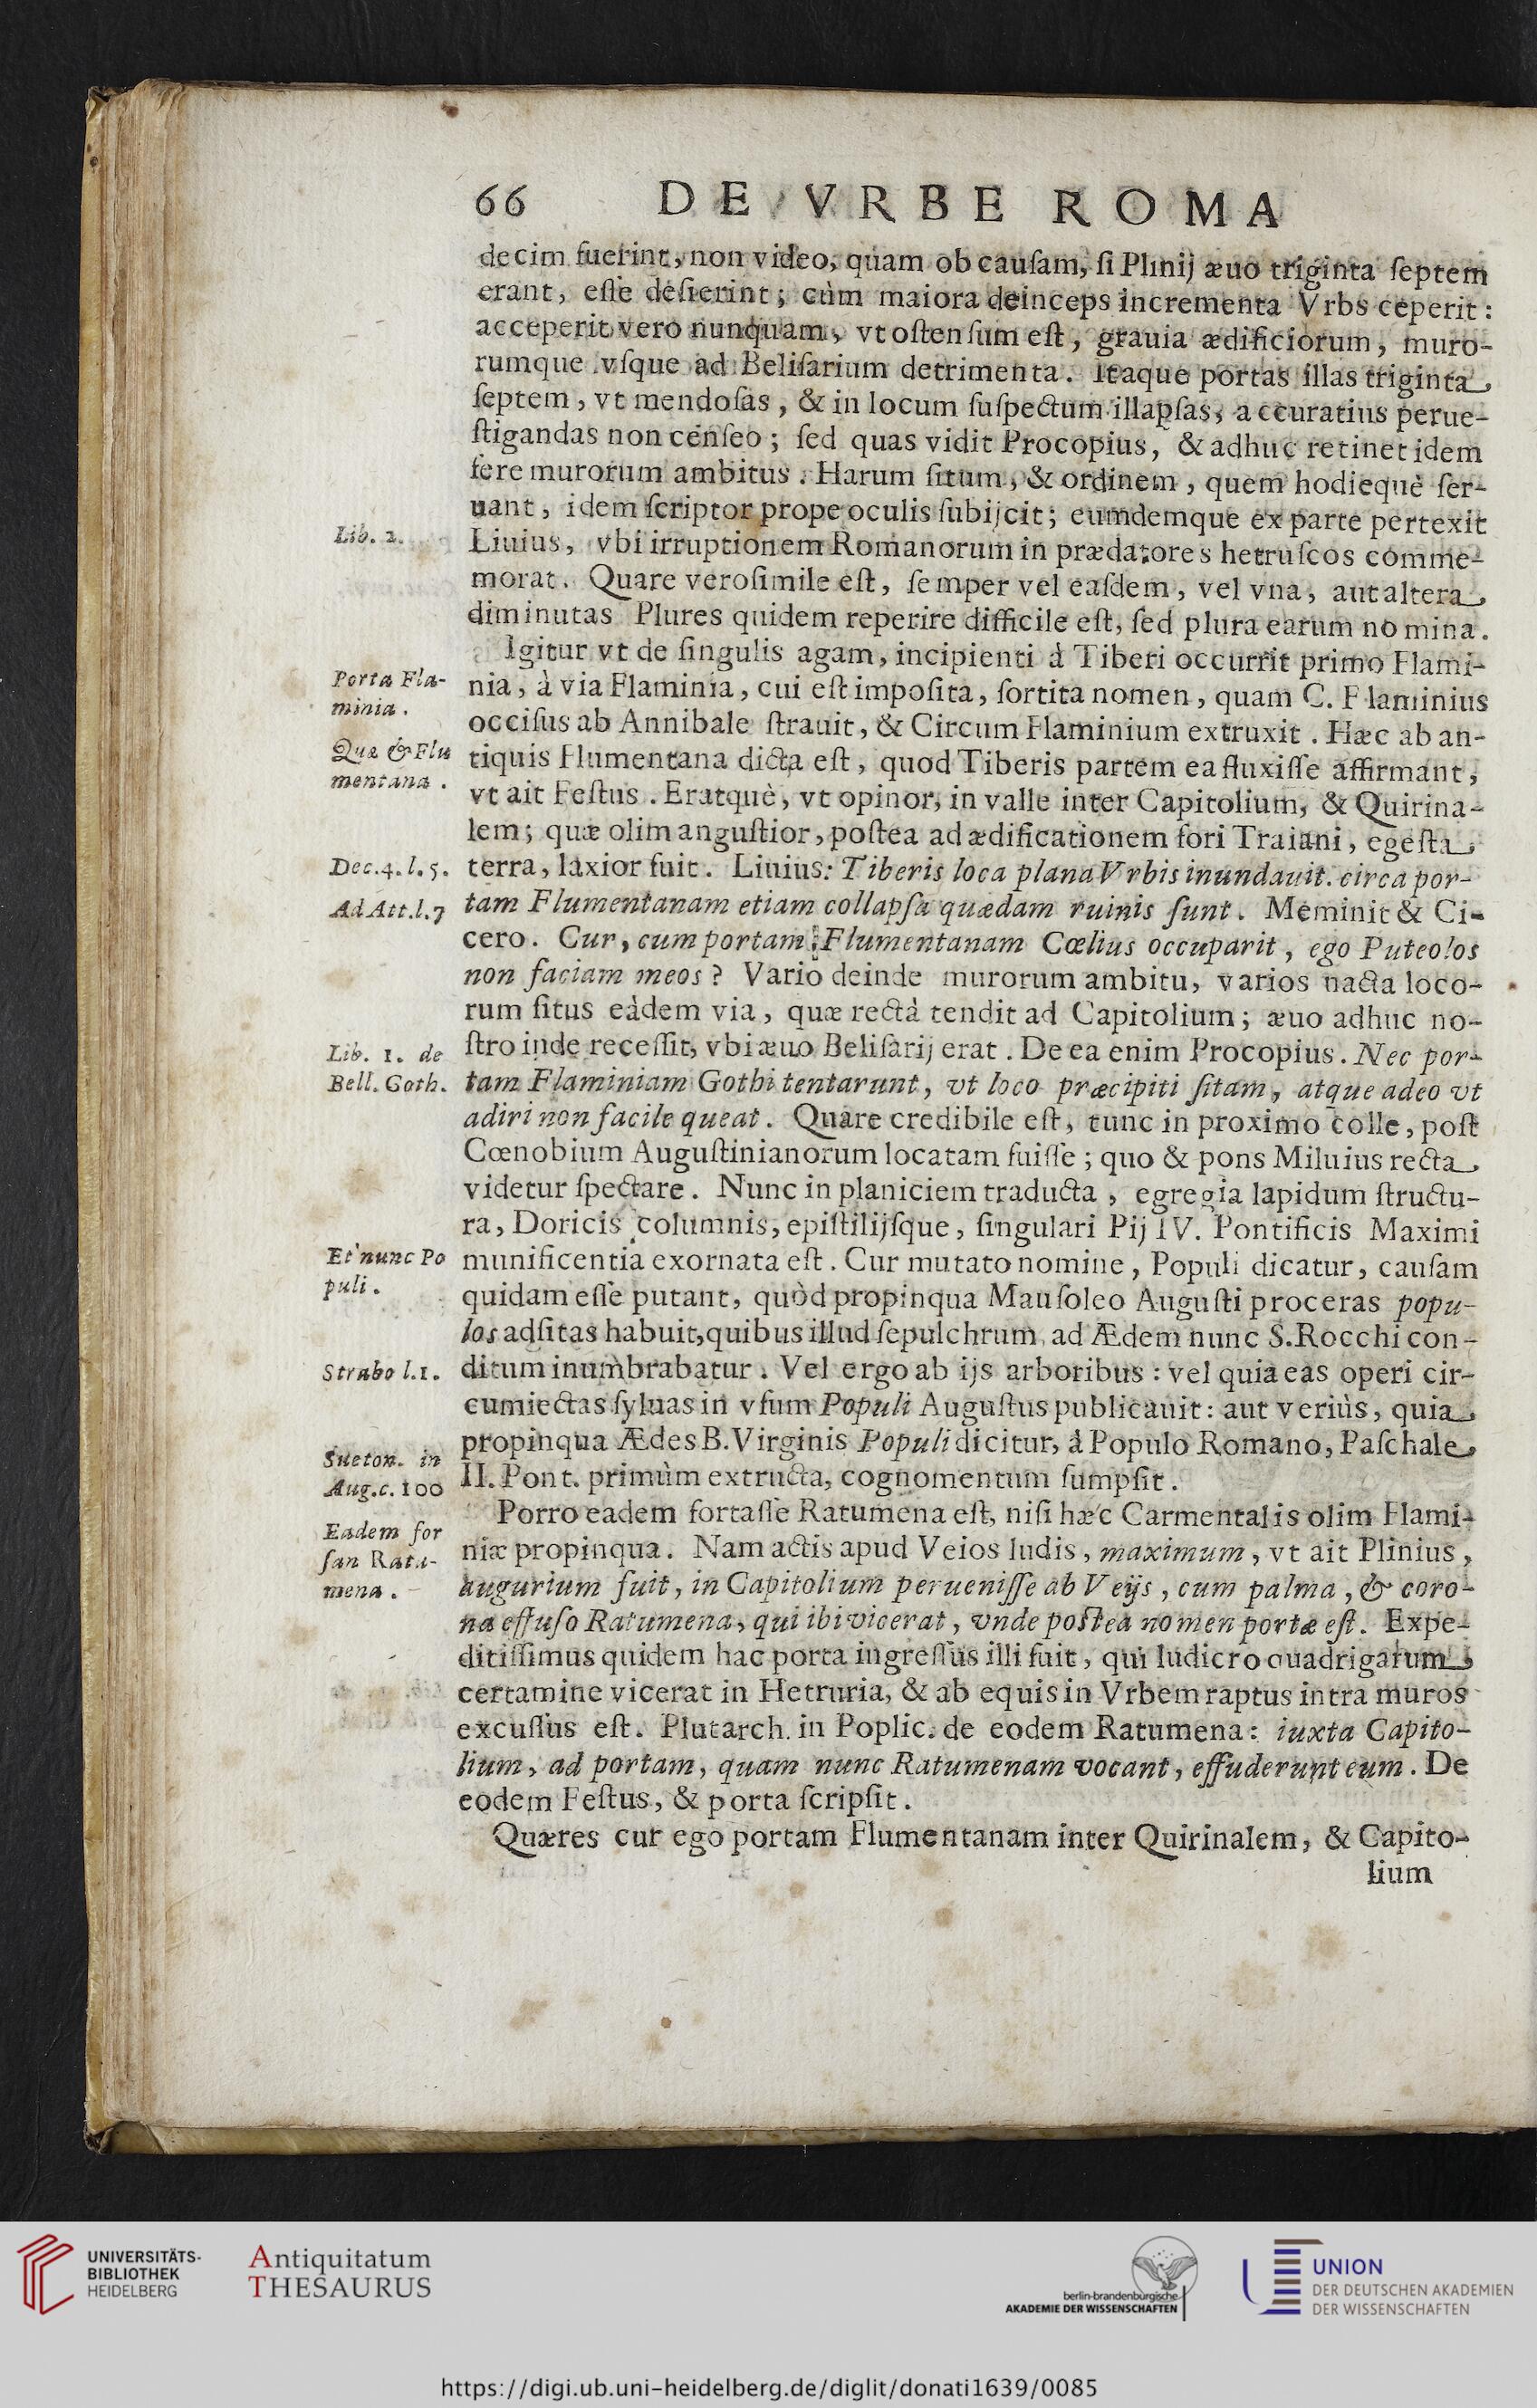 66 DE VRBE ROMA
decim fuerint, non video, quam ob cauſam, ſi Plinij æuo triginta ſeptem
erant, eſſe deſierint; cùm maiora deinceps incrementa Vrbs ceperit:
acceperit vero nunquam, vt oſtenſum eſt, grauia ædificiorum, muro-
rumque vſque ad Beliſarium detrimenta. Itaque portas illas triginta
ſeptem, vt mendoſas, & in locum ſuſpectum illapſas, accuratius perue-
ſtigandas non cenſeo; ſed quas vidit Procopius, & adhuc retinet idem
fere murorum ambitus. Harum ſitum, & ordinem, quem hodiequè ſer-
uant, idem ſcriptor prope oculis ſubijcit; eumdemque ex parte pertexit
Lib. 2.
Liuius, vbi irruptionem Romanorum in prædatores hetruſcos comme-
morat. Quare veroſimile eſt, ſemper vel eaſdem, vel vna, aut altera
diminutas Plures quidem reperire difficile eſt, ſed plura earum nomina.
Igitur vt de ſingulis agam, incipienti à Tiberi occurrit primo Flami-
Porta Fla-
minia.
nia, à via Flaminia, cui eſt impoſita, ſortita nomen, quam C. Flaminius
occiſus ab Annibale ſtrauit, & Circum Flaminium extruxit. Hæc ab an-
Quæ & Flu
mentana.
tiquis Flumentana dicta eſt, quod Tiberis partem ea fluxiſſe affirmant,
vt ait Feſtus. Eratquè, vt opinor, in valle inter Capitolium, & Quirina-
lem; quæ olim anguſtior, poſtea ad ædificationem fori Traiani, egeſta
Dec. 4. l. 5.
terra, laxior fuit. Liuius: Tiberis loca plana Vrbis inundauit. circa por-
Ad Att. l. 7
tam Flumentanam etiam collapſa quædam ruinis ſunt. Meminit & Ci-
cero. Cur, cum portam Flumentanam Cœlius occuparit, ego Puteolos
non faciam meos? Vario deinde murorum ambitu, varios nacta loco-
rum ſitus eàdem via, quæ rectà tendit ad Capitolium; æuo adhuc no-
Lib. 1. de
Bell. Goth.
ſtro inde receſſit, vbi æuo Beliſarij erat. De ea enim Procopius. Nec por-
tam Flaminiam Gothi tentarunt, vt loco præcipiti ſitam, atque adeo vt
adiri non facile queat. Quare credibile eſt, tunc in proximo colle, poſt
Cœnobium Auguſtinianorum locatam fuiſſe; quo & pons Miluius recta
videtur ſpectare. Nunc in planiciem traducta, egregia lapidum ſtructu-
ra, Doricis columnis, epiſtilijſque, ſingulari Pij IV. Pontificis Maximi
Et nunc Po
puli.
munificentia exornata eſt. Cur mutato nomine, Populi dicatur, cauſam
quidam eſſe putant, quòd propinqua Mauſoleo Auguſti proceras popu-
los adſitas habuit, quibus illud ſepulchrum ad Ædem nunc S. Rocchi con-
Strabo l. 1.
ditum inumbrabatur. Vel ergo ab ijs arboribus: vel quia eas operi cir-
cumiectas ſyluas in vſum Populi Auguſtus publicauit: aut veriùs, quia
Sueton. in
Aug. c. 100
propinqua Ædes B. Virginis Populi dicitur, à Populo Romano, Paſchale
II. Pont. primùm extructa, cognomentum ſumpſit.
Eadem for
ſan Ratu-
mena.
Porro eadem fortaſſe Ratumena eſt, niſi hæc Carmentalis olim Flami-
niæ propinqua. Nam actis apud Veios ludis, maximum, vt ait Plinius,
augurium fuit, in Capitolium perueniſſe ab Veijs, cum palma, & coro-
na effuſo Ratumena, qui ibi vicerat, vnde poſtea nomen portæ eſt. Expe-
ditiſſimus quidem hac porta ingreſſus illi fuit, qui ludicro quadrigarum
certamine vicerat in Hetruria, & ab equis in Vrbem raptus intra muros
excuſſus eſt. Plutarch. in Poplic. de eodem Ratumena: iuxta Capito-
lium, ad portam, quam nunc Ratumenam vocant, effuderunt eum. De
eodem Feſtus, & porta ſcripſit.
Quæres cur ego portam Flumentanam inter Quirinalem, & Capito-
lium
UNIVERSITÄTS-
BIBLIOTHEK
HEIDELBERG
Antiquitatum
THESAURUS
berlin-brandenburgische
AKADEMIE DER WISSENSCHAFTEN
UNION
DER DEUTSCHEN AKADEMIEN
DER WISSENSCHAFTEN
https://digi.ub.uni-heidelberg.de/diglit/donati1639/0085